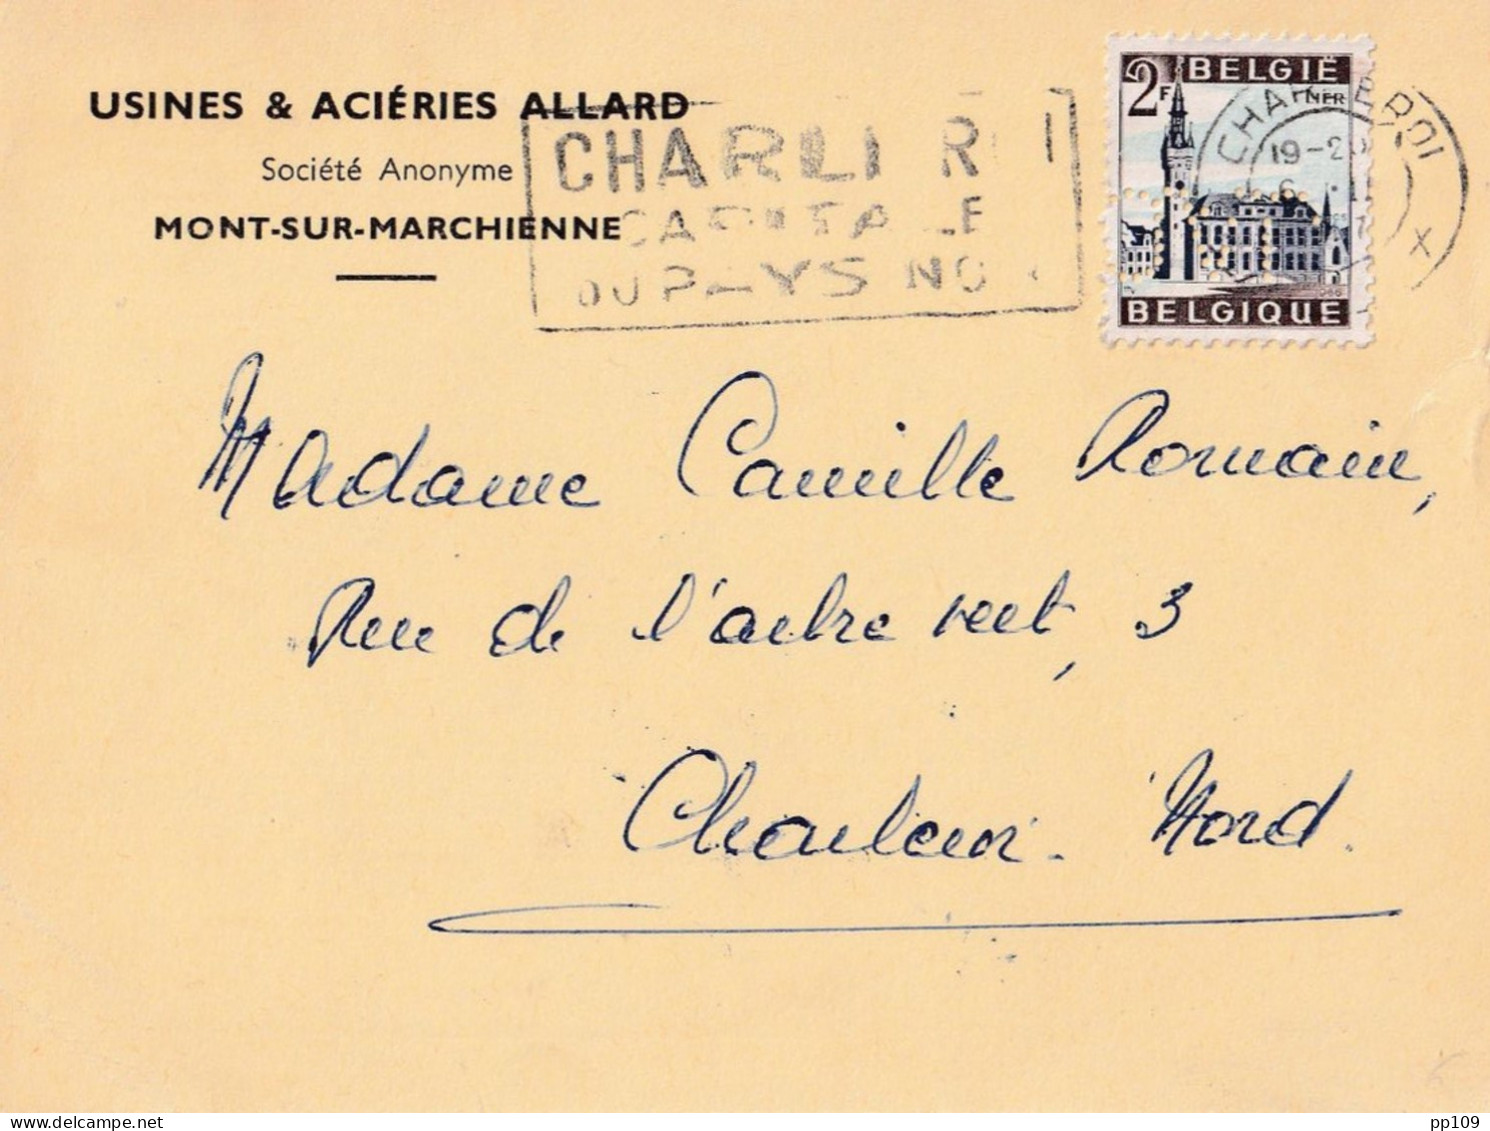 USINES & ACIÉRIES ALLARD
Société Anonyme
MONT-SUR-MARCHIENNE
CHARLI R I
CAPITALE
DU PAYS NO
2F BELGIË
NER
BELGIQUE
CHARLEROI
19-20
6
X
Madame Camille Romain,
Rue de l'arbre vert, 3
Charleroi - Nord.
pp109